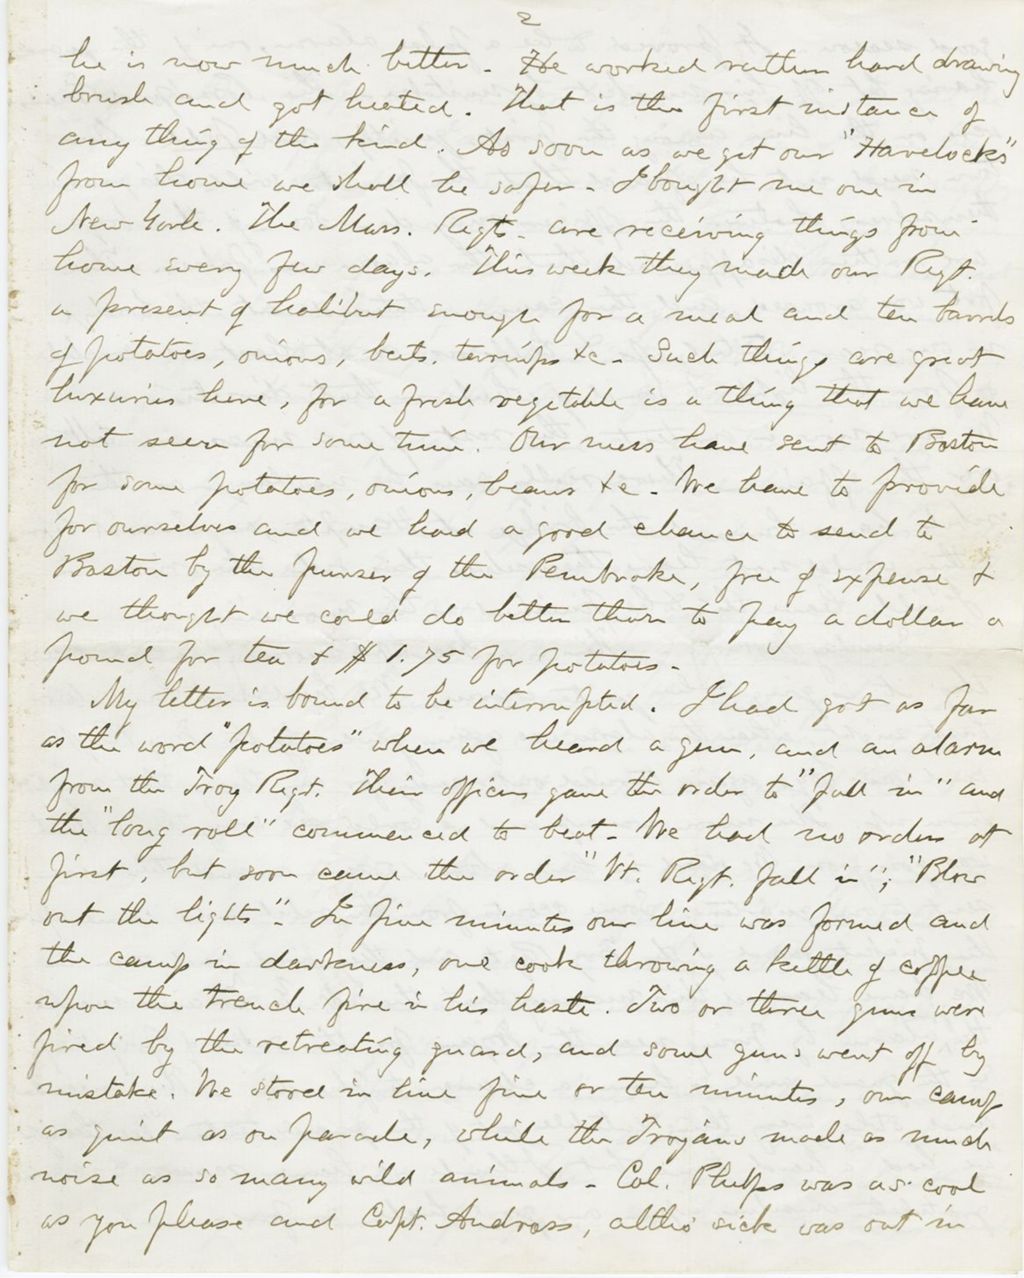 2
he is now much better. He worked rather hard drawing
brush and got heated. That is the first instance of
any thing of the kind. As soon as we get our "Havelocks"
from home we shall be safer. I bought me one in
New York. The Mass. Regts. are receiving things from
home every few days. This week they made our Regt.
a present of halibut enough for a meal and ten barrels
of potatoes, onions, beets, turnips &c. Such things are great
luxuries here, for a fresh vegetable is a thing that we have
not seen for some time. Our mess have sent to Boston
for some potatoes, onions, beans &c. We have to provide
for ourselves and we had a good chance to send to
Boston by the purser of the Pembroke, free of expense &
we thought we could do better than to pay a dollar a
pound for tea & $1.75 for potatoes.
My letter is bound to be interrupted. I had got as far
as the word "potatoes" when we heard a gun, and an alarm
from the Troy Regt. Their officers gave the order to "fall in" and
the "long roll" commenced to beat. We had no orders at
first, but soon came the order "Vt. Regt. fall in"; "Blow
out the lights". In five minutes our line was formed and
the camp in darkness, one cook throwing a kettle of coffee
upon the trench fire in his haste. Two or three guns were
fired by the retreating guard, and some guns went off by
mistake. We stood in line five or ten minutes, our camp
as quiet as on parade, while the Trojans made as much
noise as so many wild animals. Col. Phelps was as cool
as you please and Capt. Andross, altho' sick was out in